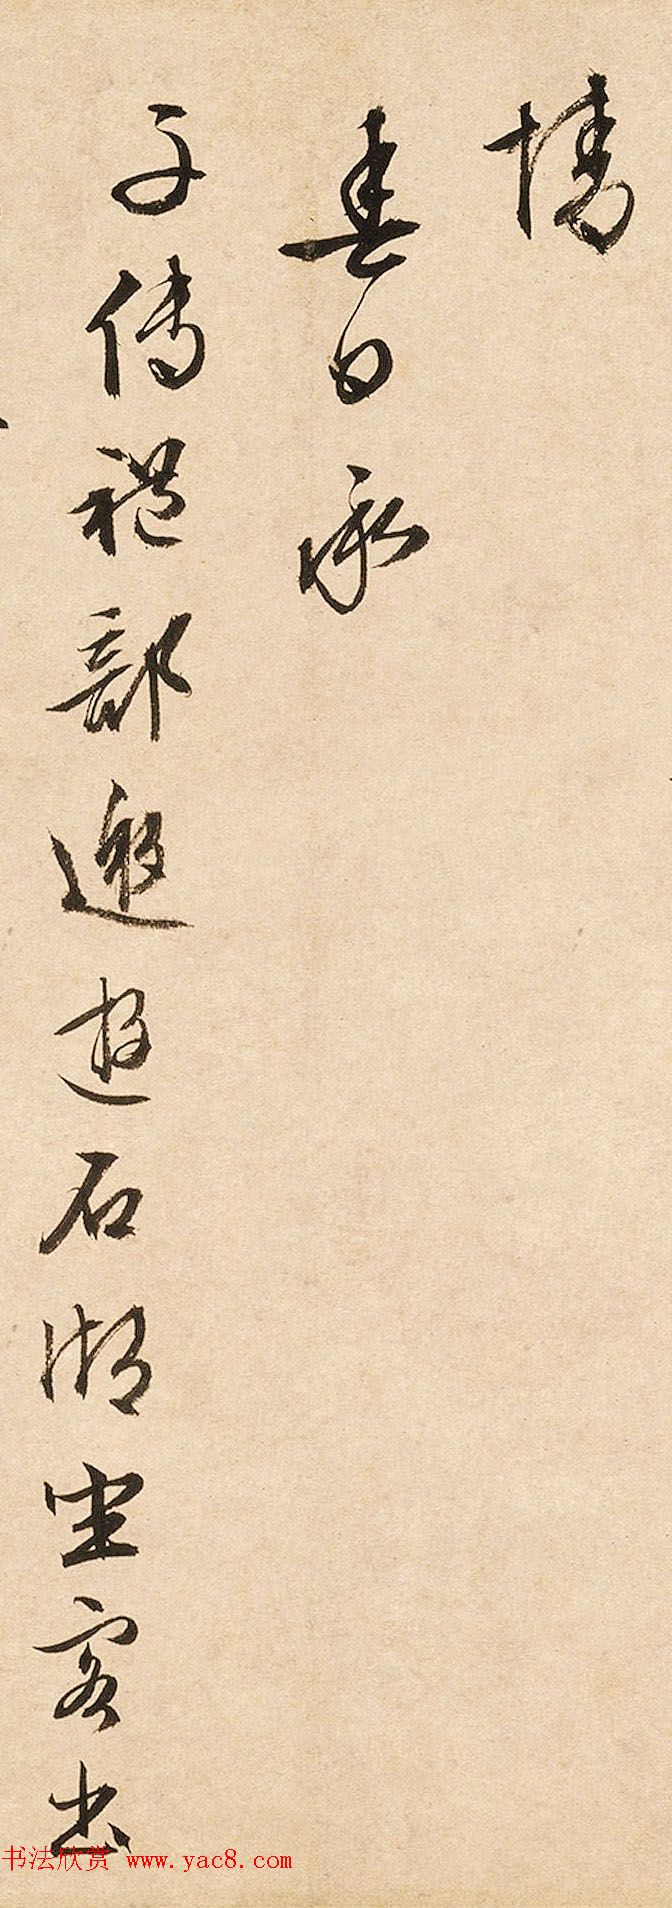 情
春日承
子传礼部邀游石湖坐客出
书法欣赏 www.yac8.com